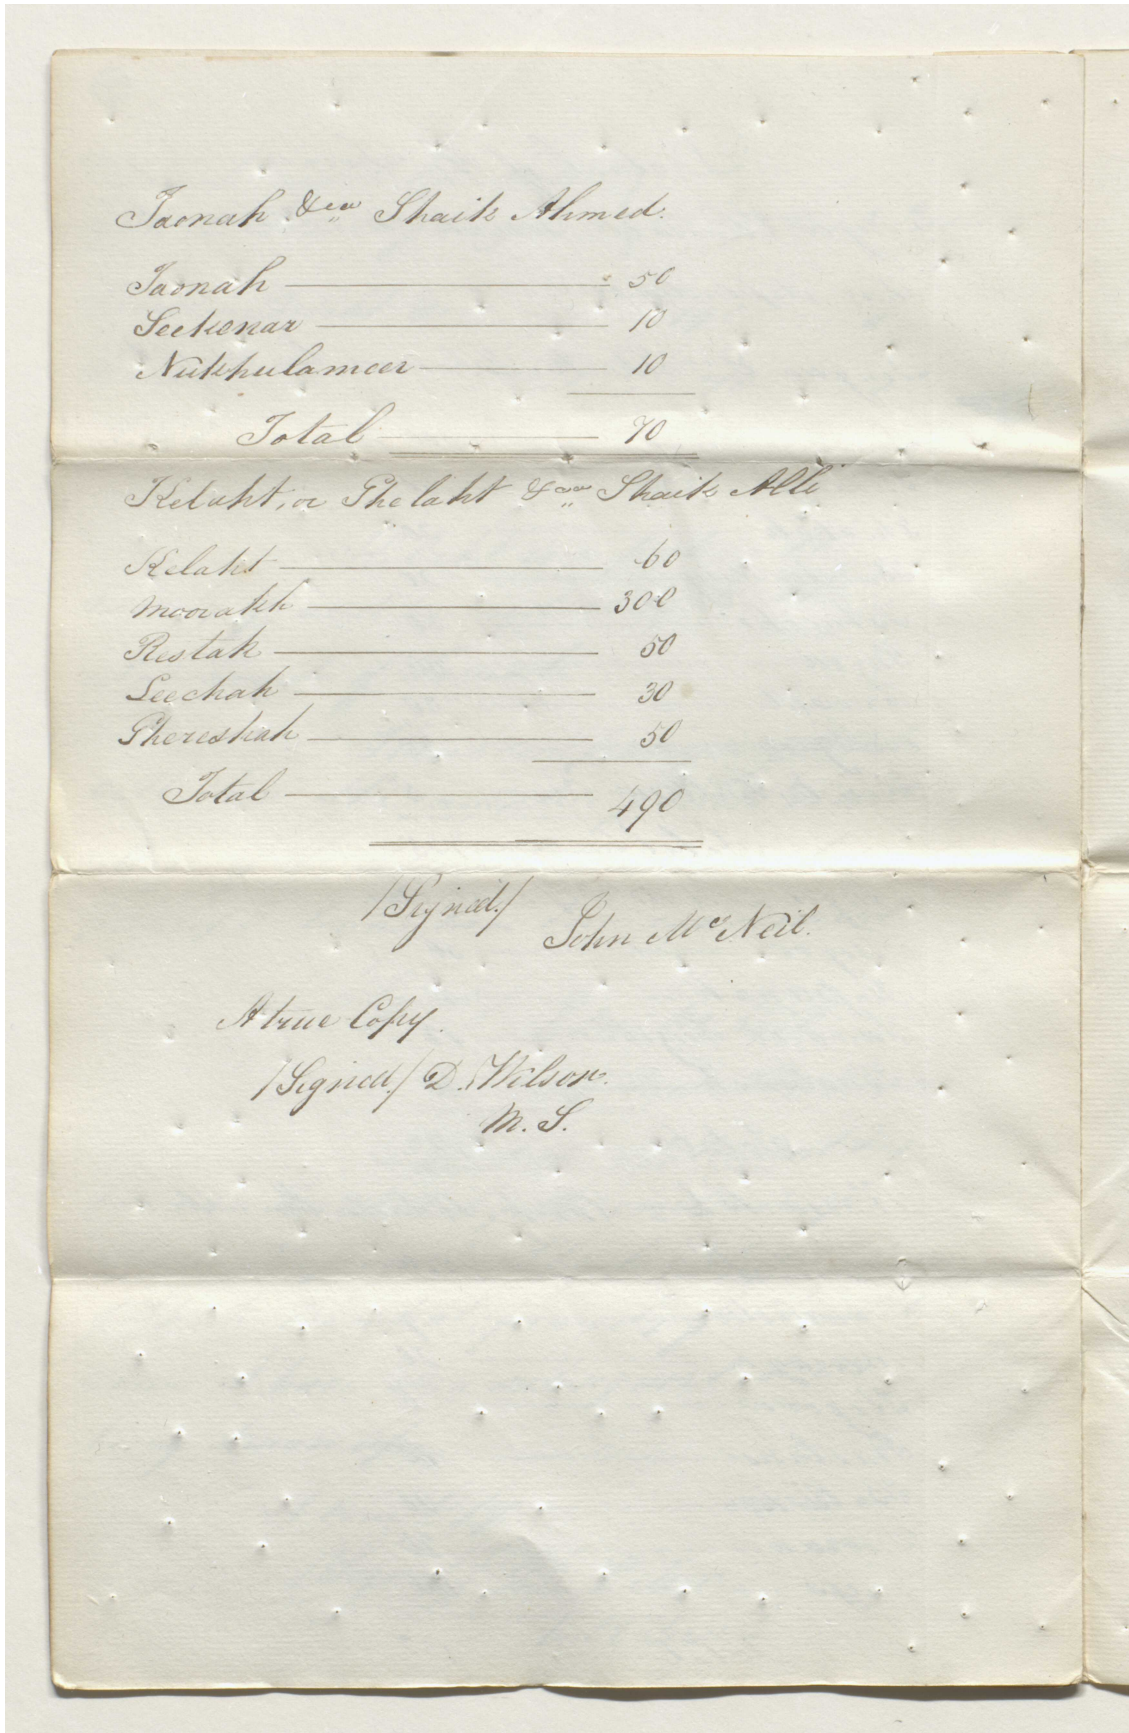 Taonah &ca Shaik Ahmed.
Taonah 50
Seekonar 10
Nukhulameer 10
Total 70
Kelaht, or Ghelaht &ca Shaik Alli
Kelaht 60
Moorakh 300
Restak 50
Leechah 30
Ghereshah 50
Total 490
/Signed./
John McNeil.
A true Copy.
/Signed./ D. Wilson.
M. S.